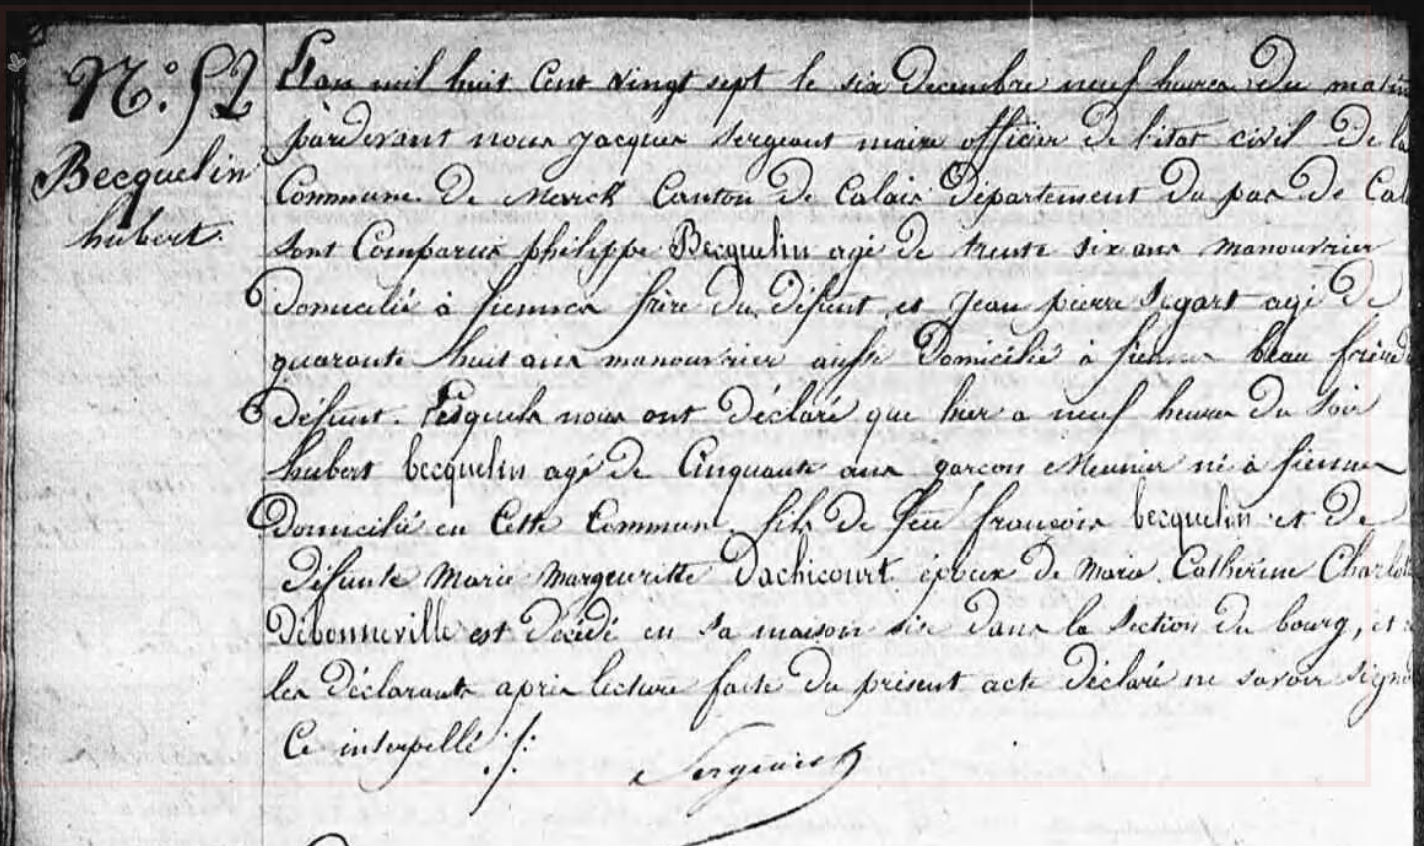 N.° 52
Becquelin
hubert.
L'an mil huit Cent vingt sept le six decembre neuf heures du matin
pardevant nous jacques Sergeant maire officier de l'état civil De la
Commune de Merck Canton de Calais Département du pas de Cal
sont Comparus philippe Becquelin agé de trente six ans manouvrier
Domicilié à fiennes frère du défunt et Jean pierre Segart agé De
quarante huit ans manouvrier aussi Domicilié à fiennes beau frère d
défunt. Lesquels nous ont déclaré que hier a neuf heures du Soir
hubert becquelin agé de Cinquante ans garcon Meunier né à fiennes
Domicilié en Cette Commune fils de feu françois becquelin et De
défunte Marie Margeuritte Dachicourt époux de Marie Catherine Charlot
Débonneville est Décédé en sa maison sise dans la Section du bourg, et
les déclarants après lecture faite du présent acte déclaré ne savoir signé
Ce interpellé ./.
Sergeant